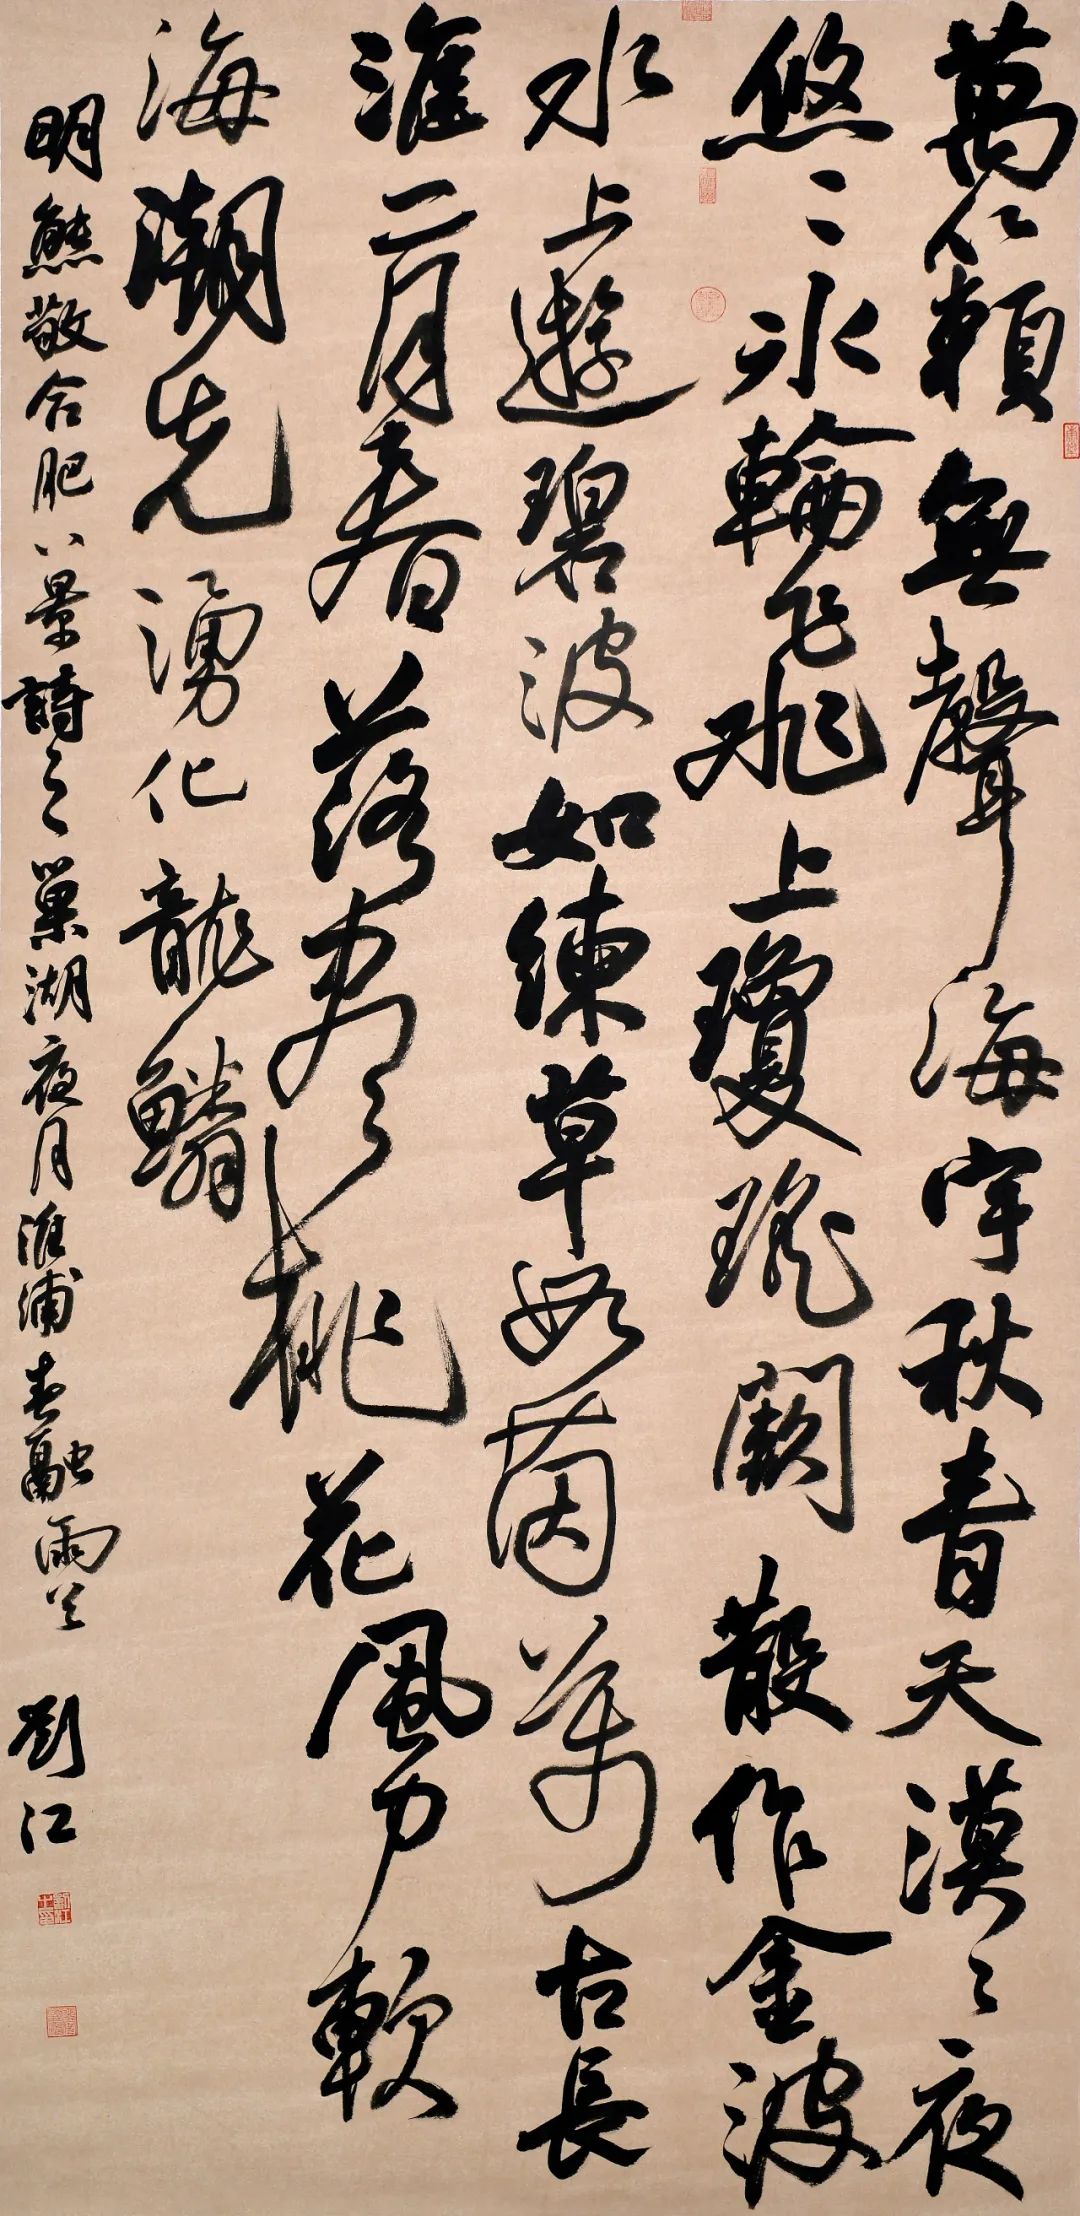 萬籟無聲海宇秋青天漠〻夜
悠〻冰輪飛上瓊瑤闕散作金波
水上遊碧波如練草如茵萬古長
淮二月春落盡桃花風力軟
海潮先湧化龍鱗
明熊敬合肥八景詩之巢湖夜月淮浦春融兩首 劉江